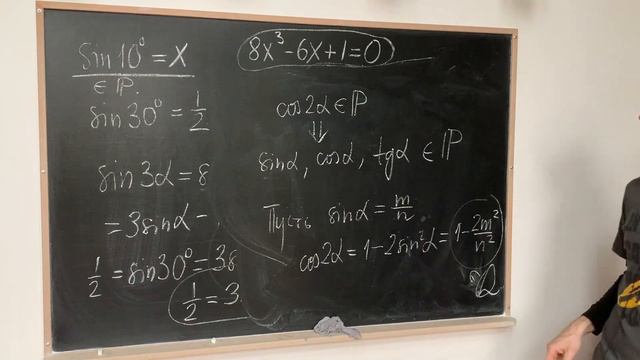 sin10° = x
∈ ℙ.
sin30° = 1/2
sin3α = 8
= 3sinα −
1/2 = sin30° = 38
1/2 = 3
8x³ − 6x + 1 = 0
cos2α ∈ ℙ
⇓
sinα, cosα, tgα ∈ ℙ
Пусть sinα = m/n
cos2α = 1 − 2sin²α = 1 − 2m²/n²
ℚ